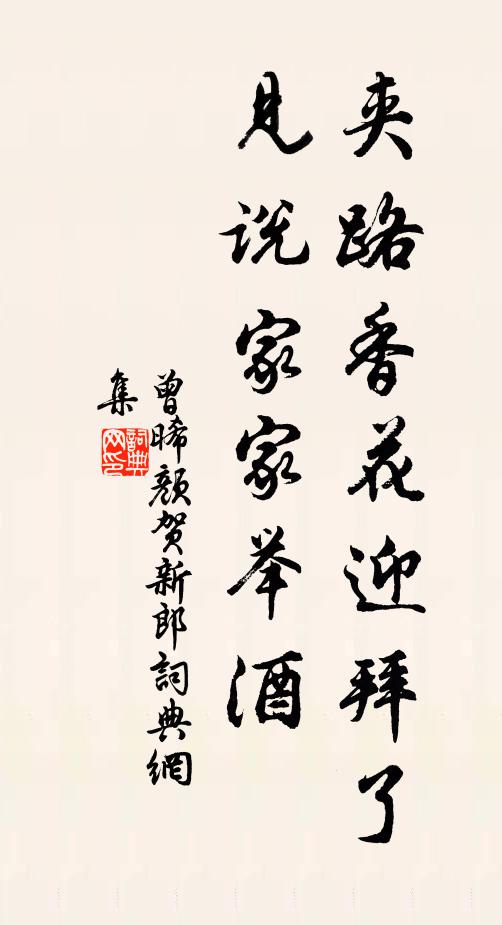 夹路香花迎拜了
见说家家举酒
曾晞颜贺新郎詞典網
集
詞典网印